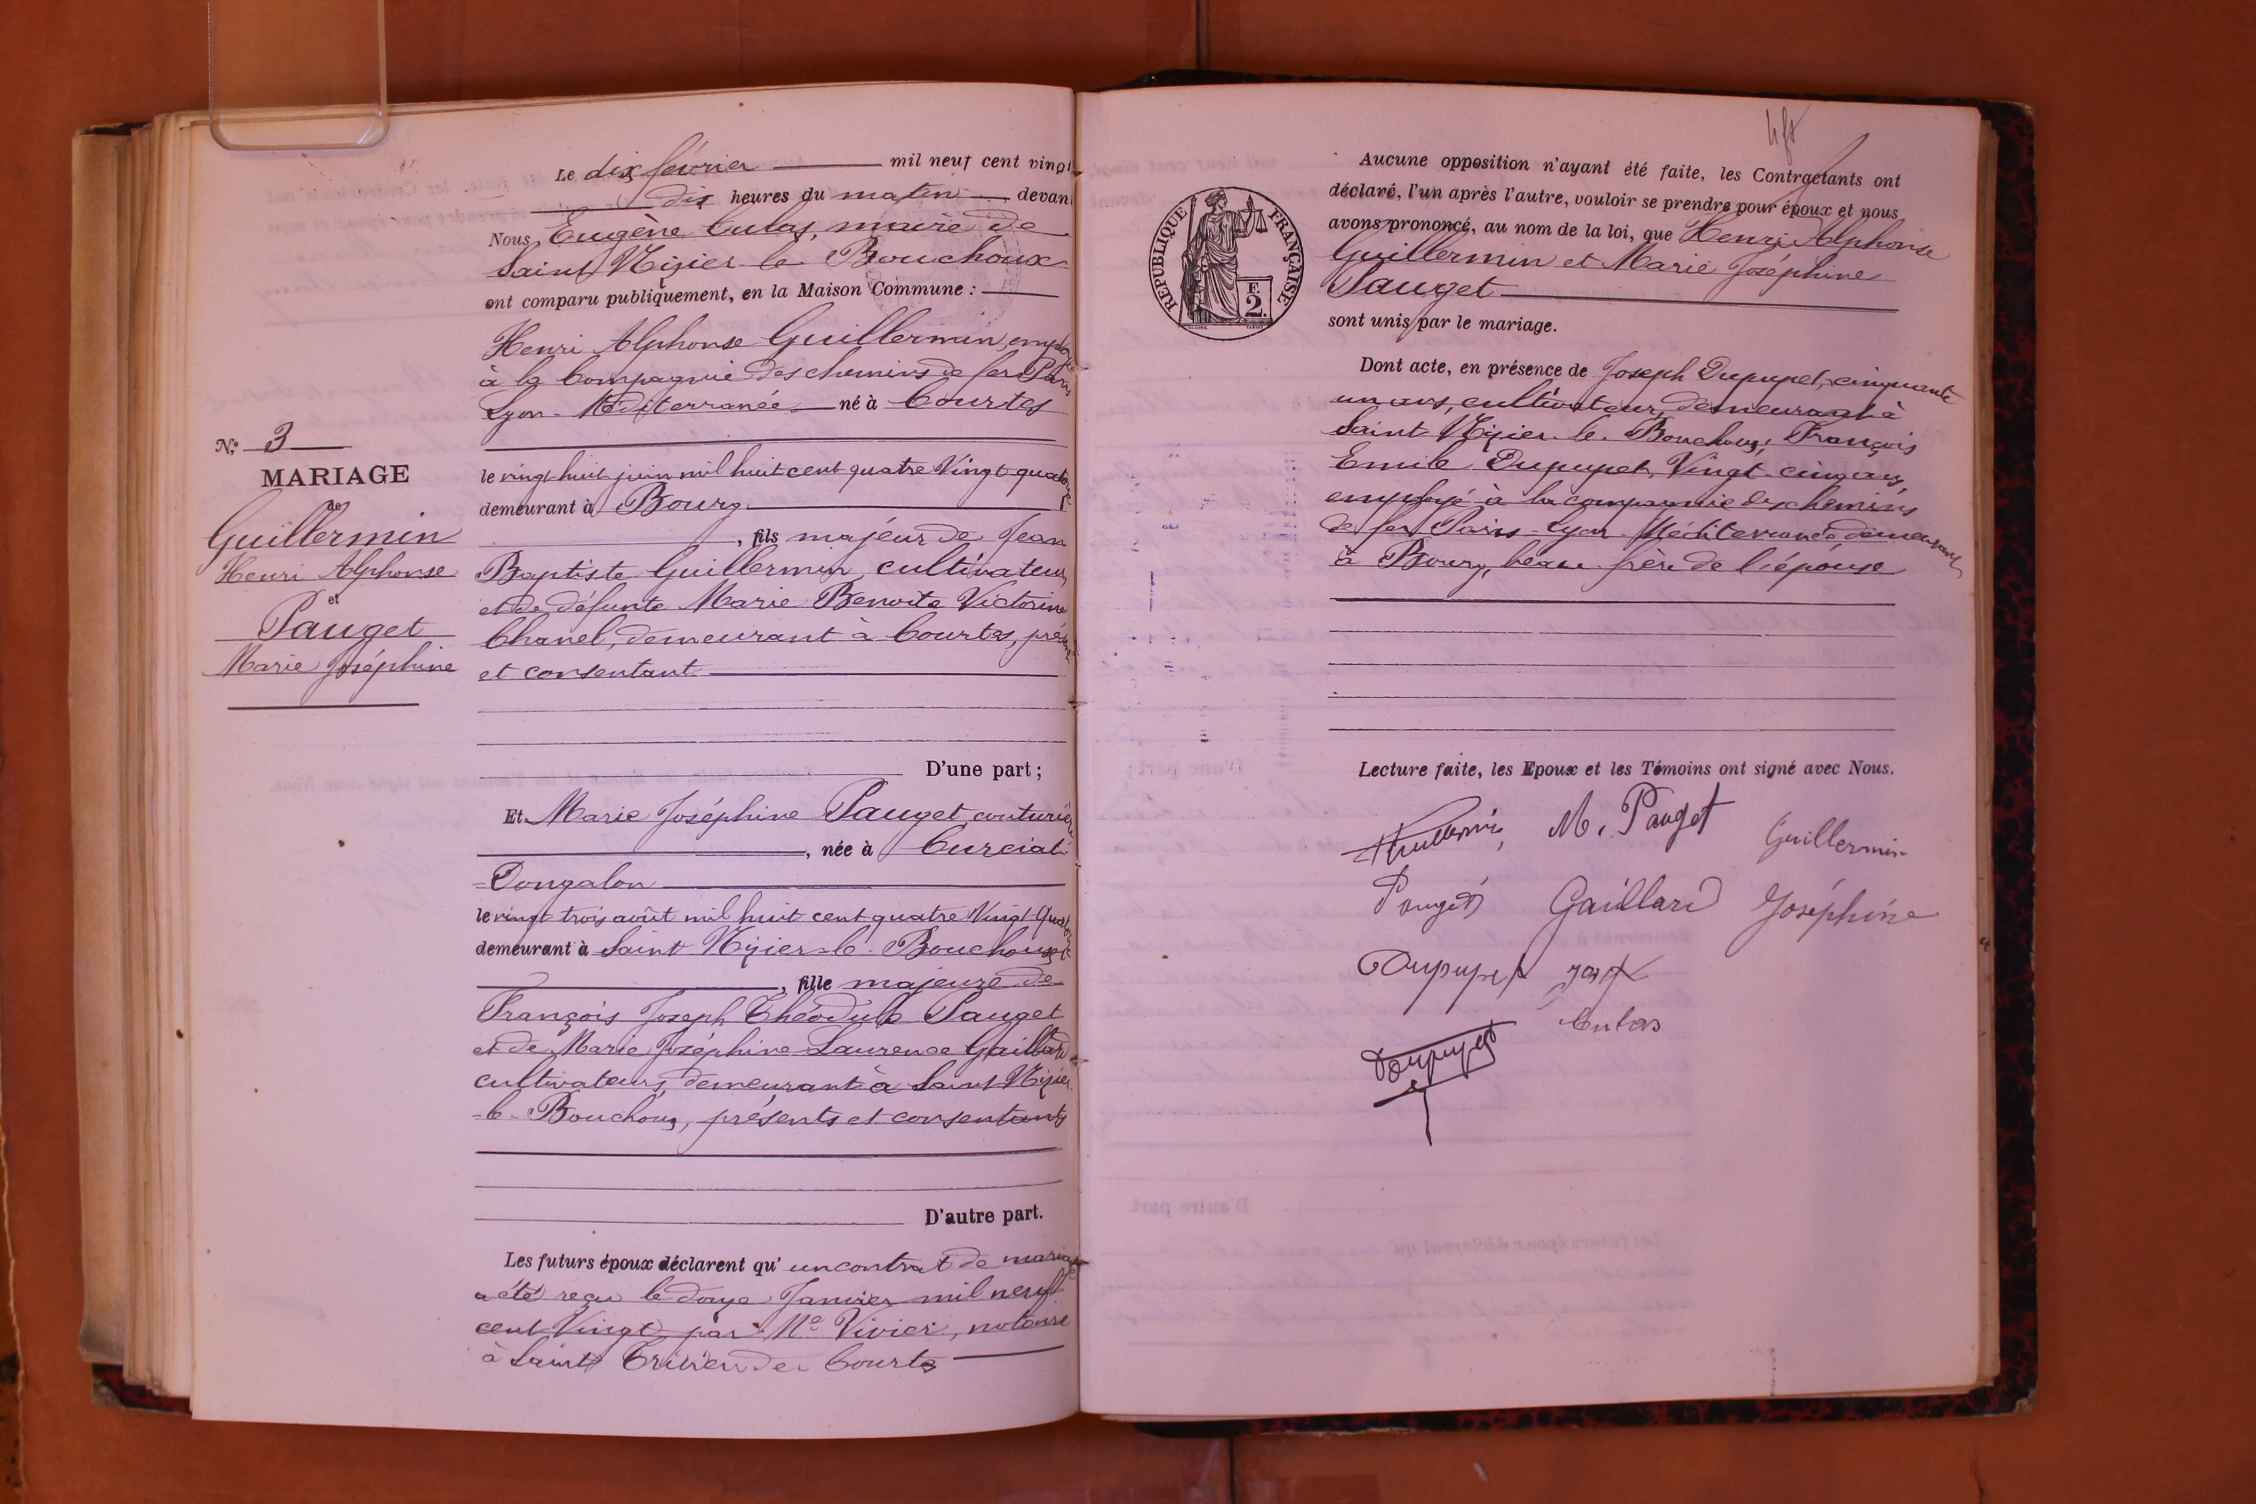 Le dix février mil neuf cent vingt
dix heures du matin devant
Nous Eugène Culas, maire de
Saint Nizier le Bouchoux
ont comparu publiquement, en la Maison Commune :
Henri Alphonse Guillermin, employé
à la Compagnie des chemins de fer Paris
Lyon-Méditerranée né à Courtes
N° 3
MARIAGE
de
Guillermin
Henri Alphonse
et
Pauget
Marie Joséphine
le vingt huit juin mil huit cent quatre vingt quatorze
demeurant à Bourg
, fils majeur de Jean
Baptiste Guillermin, cultivateur
et de défunte Marie Benoite Victorine
Chanel, demeurant à Courtes, présent
et consentant
D'une part ;
Et Marie Joséphine Pauget, couturière
, née à Curciat
-Dongalon
le vingt trois août mil huit cent quatre Vingt Quatorze
demeurant à Saint Nizier-le-Bouchoux
, fille majeure de
François Joseph Théodule Pauget
et de Marie Joséphine Laurence Gaillard
cultivateurs, demeurant à Saint Nizier
-le-Bouchoux, présents et consentants
D'autre part.
Les futurs époux déclarent qu' un contrat de mariage
a été reçu le douze Janvier mil neuf
cent Vingt par Me Vivier, notaire
à Saint Trivier de Courtes
RÉPUBLIQUE FRANÇAISE
F.
2.
Aucune opposition n'ayant été faite, les Contractants ont
déclaré, l'un après l'autre, vouloir se prendre pour époux et nous
avons prononcé, au nom de la loi, que Henri Alphonse
Guillermin et Marie Joséphine
Pauget
sont unis par le mariage.
Dont acte, en présence de Joseph Dupupet, cinquante
un ans, cultivateur, demeurant à
Saint Nizier-le-Bouchoux, François
Emile Dupupet, Vingt-cinq ans,
employé à la compagnie des chemins
de fer Paris-Lyon-Méditerranée demeurant
à Bourg, beau-frère de l'épouse
Lecture faite, les Epoux et les Témoins ont signé avec Nous.
Guillermin M. Pauget Guillermin
Pauget Gaillard Joséphine
Dupupet
Culas
Dupupet